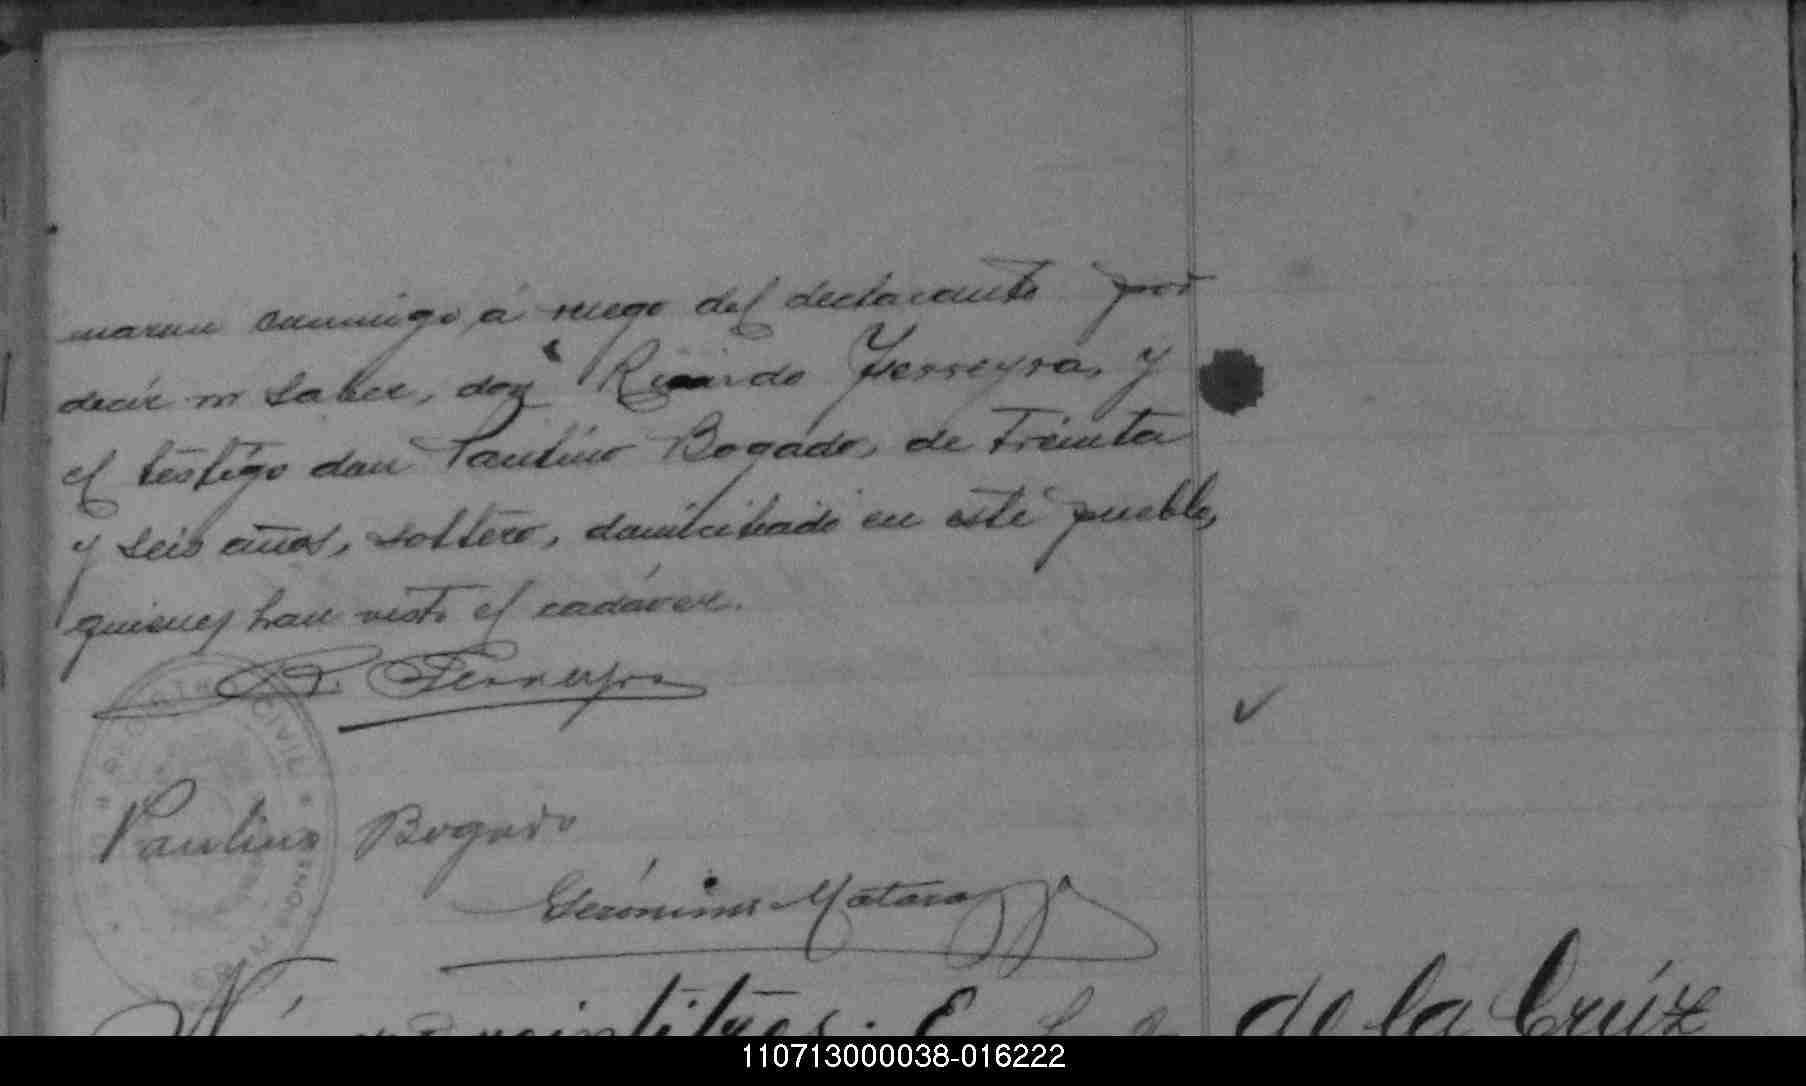 maron conmigo, á ruego del declarante por
decir no saber, don Ricardo Ferreyra, y
el testigo don Paulino Bogado, de treinta
y seis años, soltero, domiciliado en este pueblo,
quienes han visto el cadáver.
R. Ferreyra
REGISTRO CIVIL
MISIONES
Paulino Bogado
Gerónimo
veintitres.
de la Crúz
110713000038-016222